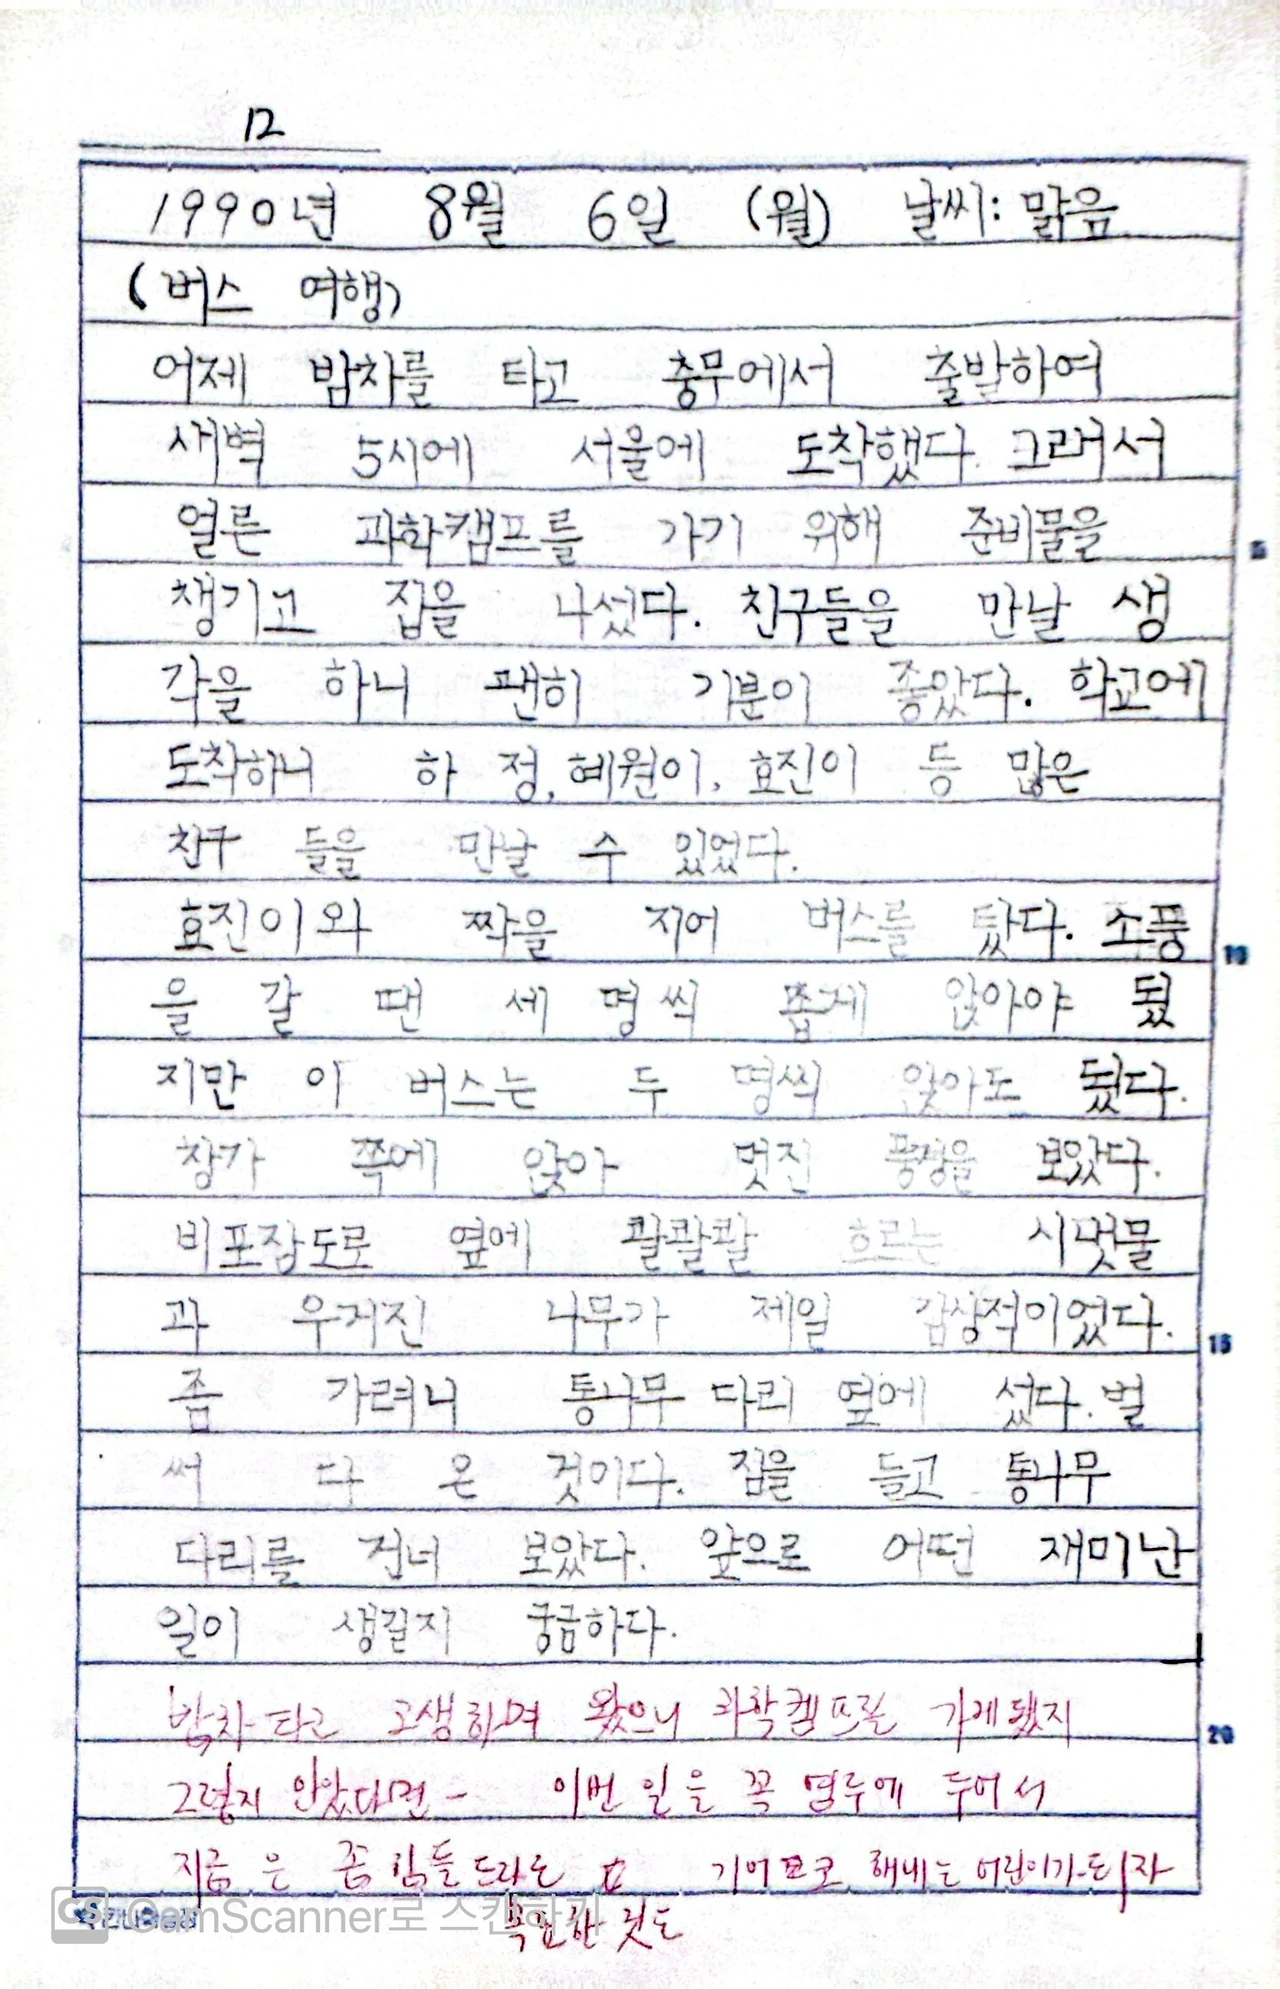 12
1990년 8월 6일 (월) 날씨: 맑음
(버스 여행)
어제 밤차를 타고 충무에서 출발하여
새벽 5시에 서울에 도착했다. 그래서
얼른 과학캠프를 가기 위해 준비물을
챙기고 집을 나섰다. 친구들을 만날 생
각을 하니 괜히 기분이 좋았다. 학교에
도착하니 하 정, 혜원이, 효진이 등 많은
친구 들을 만날 수 있었다.
효진이와 짝을 지어 버스를 탔다. 소풍
을 갈 땐 세 명씩 좁게 앉아야 됬
지만 이 버스는 두 명씩 앉아도 됬다.
창가 쪽에 앉아 멋진 풍경을 보았다.
비포장도로 옆에 콸콸콸 흐르는 시냇물
과 우거진 나무가 제일 감상적이었다.
좀 가려니 통나무 다리 옆에 섰다. 벌
써 다 온 것이다. 짐을 들고 통나무
다리를 건너 보았다. 앞으로 어떤 재미난
일이 생길지 궁금하다.
밤차 타고 고생하며 왔으니 과학캠프를 가게 됐지
그렇지 않았다면- 이번 일을 꼭 염두에 두어서
지금은 좀 힘들드라도 꼭 해내는 어린이가 되자
필요한 것도
5
10
15
20
CS CamScanner로 스캔하기